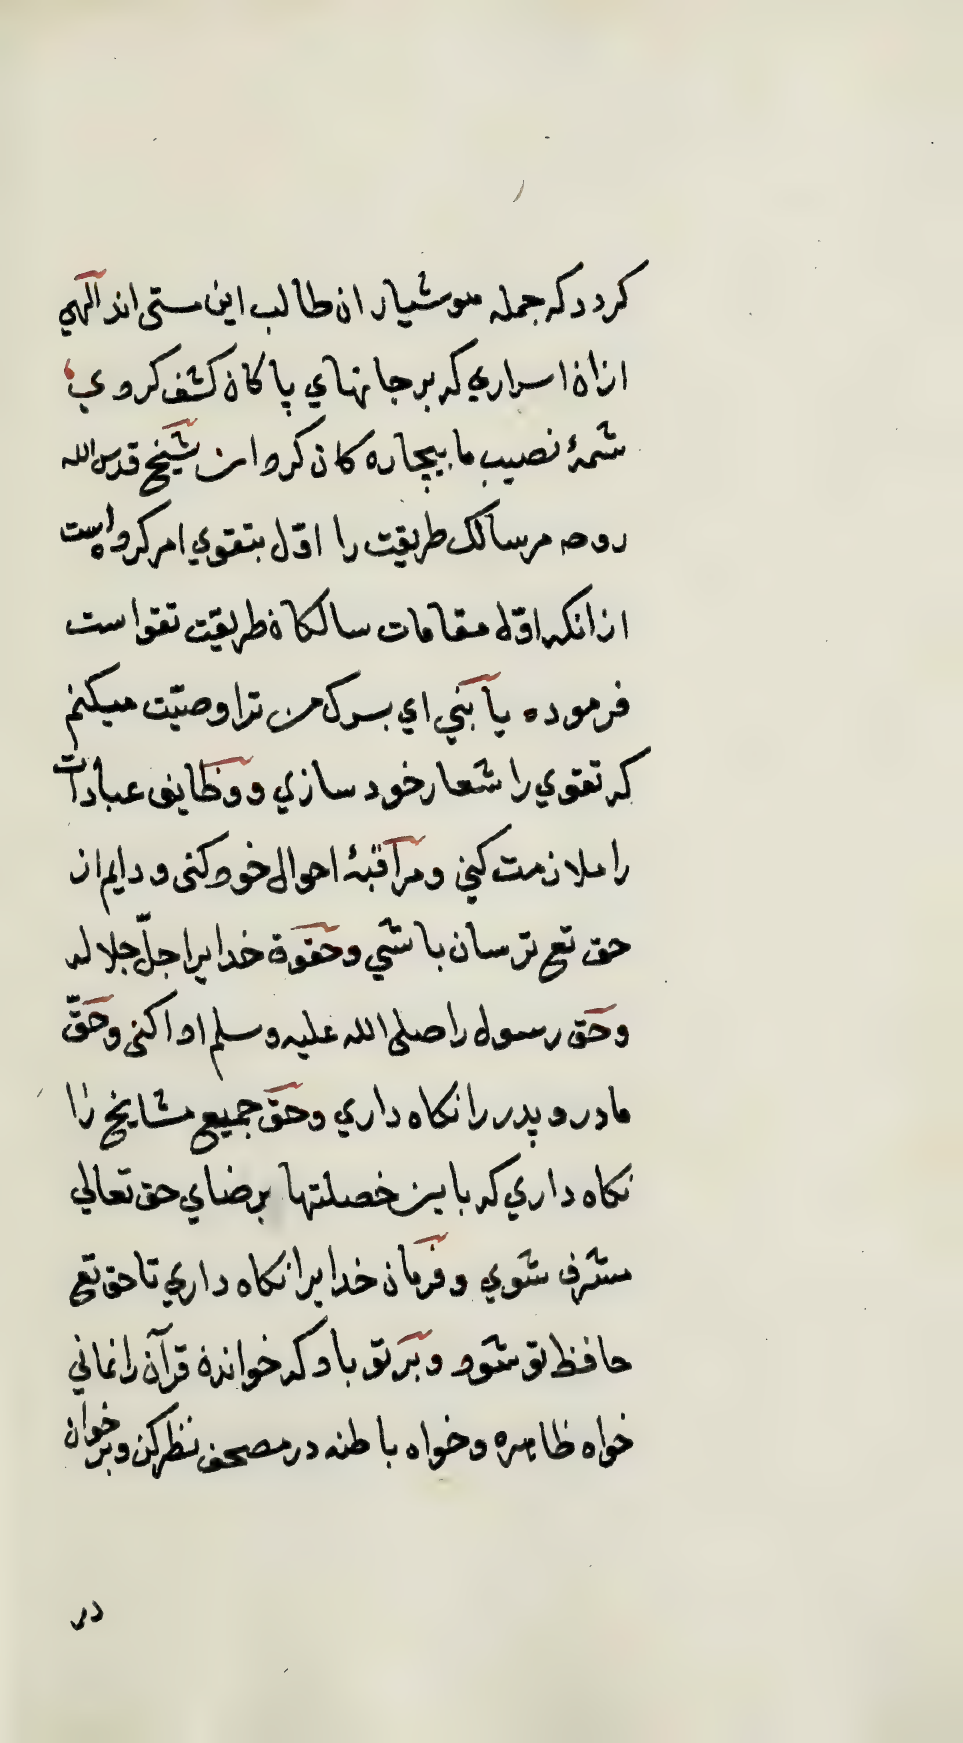 كردد كه جمله هوشیار ان طالب این مستی اند آلهي
ازان اسراري كه بر جانهاي پاكان كشف كردي
شمۀ نصیب ما بیچاره كان كردان شیخ قدس الله
روحه مر سالك طریقت را اوّل بتقوي امر كرده است
ازانكه اوّل مقامات سالكان طریقت تقوا ست
فرموده یا بني اي پسرك من ترا وصیّت میكنم
كه تقوي را شعار خود سازي و وظایف عبادات
را ملازمت كني و مراقبۀ احوال خود كنی و دایم از
حق تع ترسان باشي و حقوق خدایرا جلّ جلاله
و حق رسول را صلی الله علیه و سلم ادا كنی و حقّ
مادر و پدر را نكاه داري و حق جمیع مشایخ را
نكاه داري كه باین خصلتها برضاي حق تعالي
مشرف شوي و فرمان خدایرا نكاه داري تا حق تع
حافظ تو شود و بر تو باد كه خواندن قرآن را نماني
خواه ظاهره و خواه باطنه در مصحف نظر كن و بر خوان
در